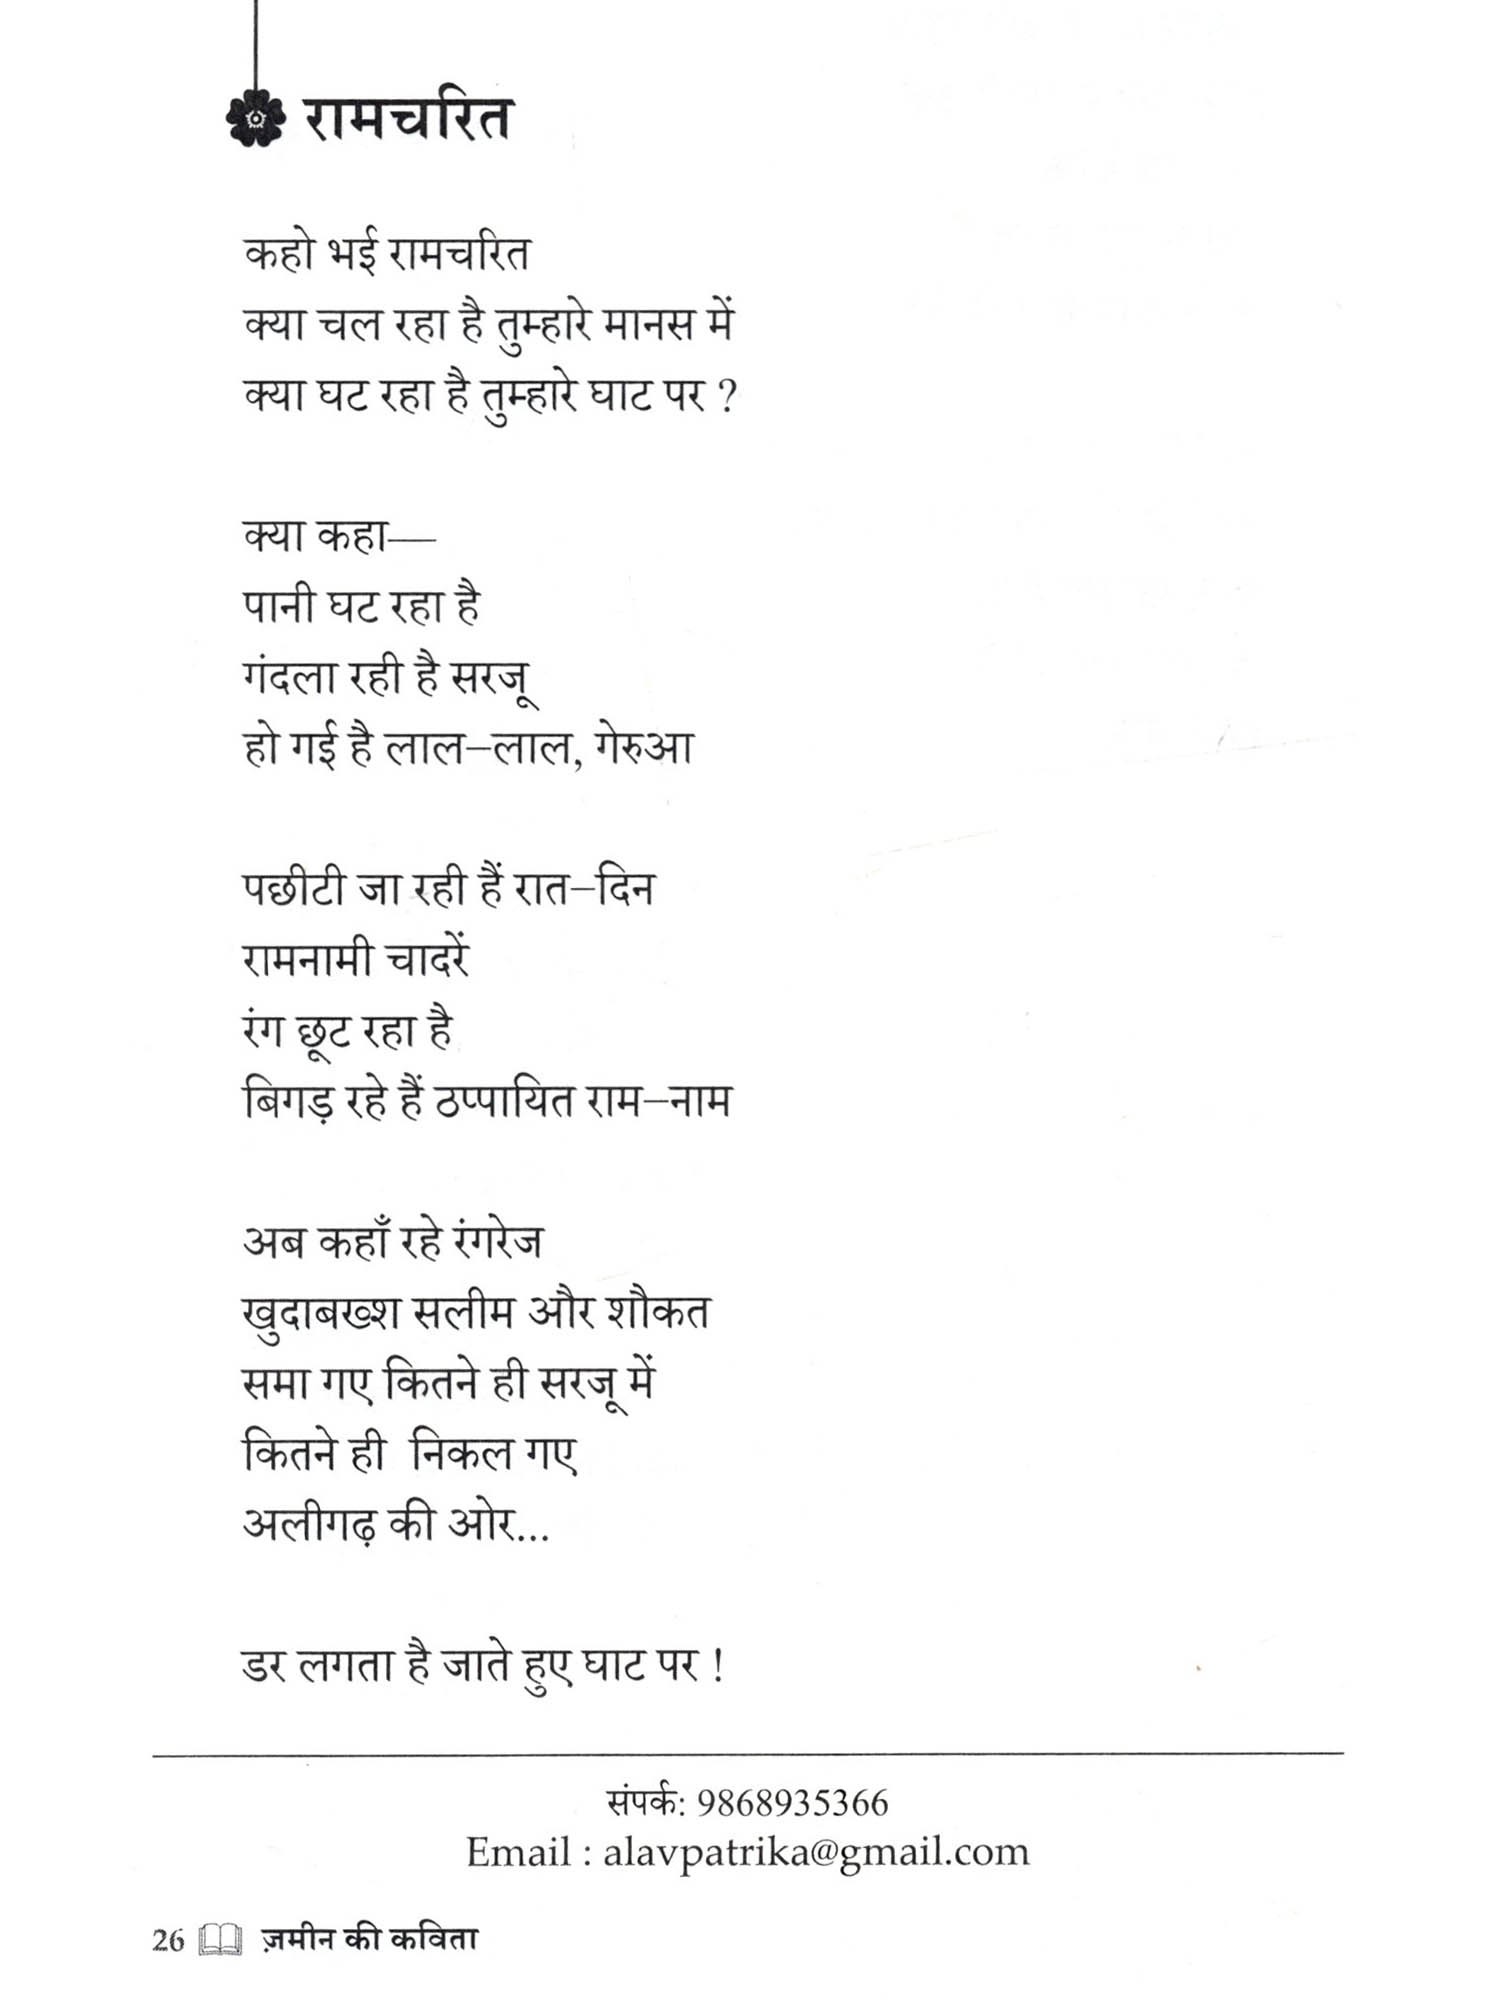 रामचरित
कहो भई रामचरित
क्या चल रहा है तुम्हारे मानस में
क्या घट रहा है तुम्हारे घाट पर ?
क्या कहा—
पानी घट रहा है
गंदला रही है सरजू
हो गई है लाल–लाल, गेरुआ
पछीटी जा रही हैं रात–दिन
रामनामी चादरें
रंग छूट रहा है
बिगड़ रहे हैं ठप्पायित राम–नाम
अब कहाँ रहे रंगरेज
खुदाबख्श सलीम और शौकत
समा गए कितने ही सरजू में
कितने ही निकल गए
अलीगढ़ की ओर...
डर लगता है जाते हुए घाट पर !
संपर्क: 9868935366
Email : alavpatrika@gmail.com
26 ज़मीन की कविता